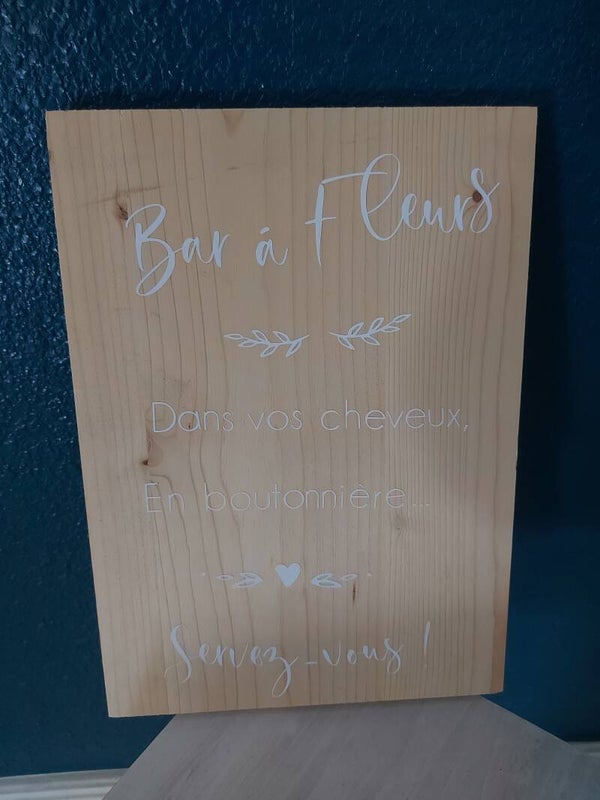 Bar á Fleurs
Dans vos cheveux,
En boutonnière...
Servez-vous !